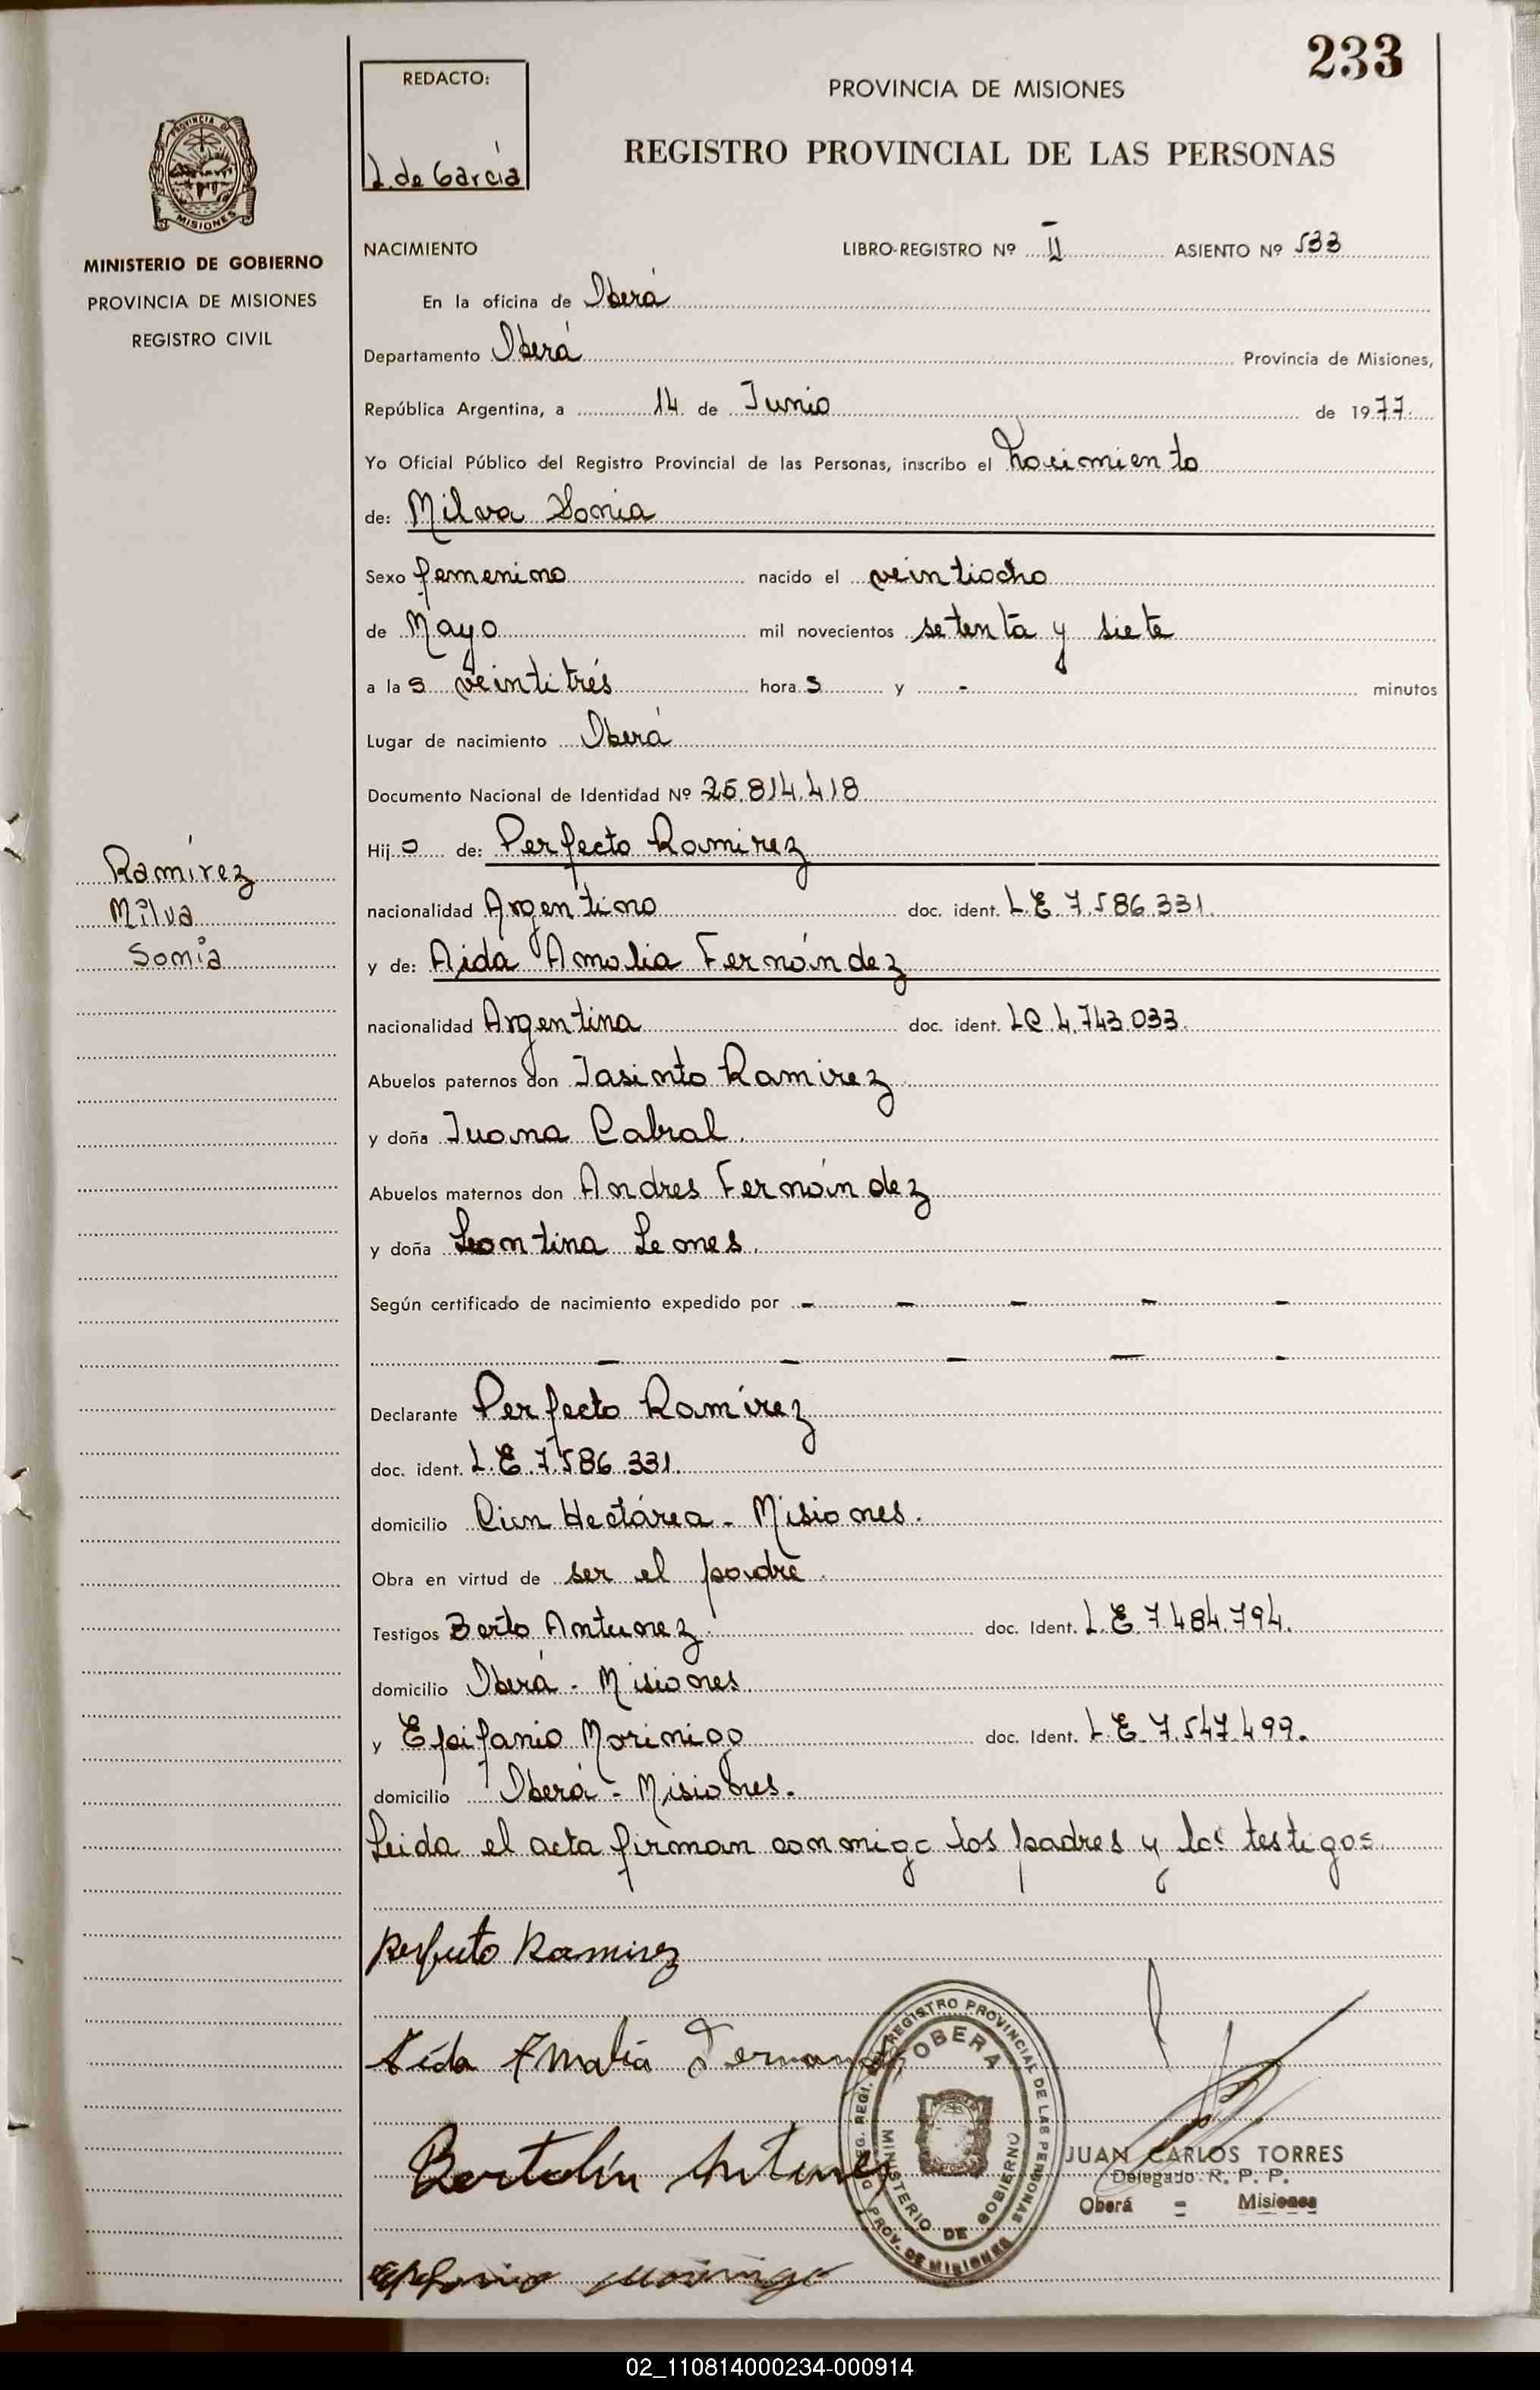 233
REDACTO:
J. de García
PROVINCIA DE MISIONES
REGISTRO PROVINCIAL DE LAS PERSONAS
PROVINCIA DE
MISIONES
MINISTERIO DE GOBIERNO
PROVINCIA DE MISIONES
REGISTRO CIVIL
NACIMIENTO LIBRO-REGISTRO Nº II ASIENTO Nº 533
En la oficina de Oberá
Departamento Oberá Provincia de Misiones,
República Argentina, a 14 de Junio de 1977.
Yo Oficial Público del Registro Provincial de las Personas, inscribo el nacimiento
de: Milva Sonia
Sexo femenino nacido el veintiocho
de Mayo mil novecientos setenta y siete
a las veintitrés horas y - minutos
Lugar de nacimiento Oberá
Documento Nacional de Identidad Nº 25.814.418
Hij a de: Perfecto Ramirez
Ramírez
Milva
Sonia
nacionalidad Argentino doc. ident. L.E. 7.586.331.
y de: Aida Amalia Fernández
nacionalidad Argentina doc. ident. LC 4.743.033.
Abuelos paternos don Jasinto Ramirez
y doña Juana Cabral.
Abuelos maternos don Andres Fernández
y doña Leontina Leones.
Según certificado de nacimiento expedido por - - - - -
- - - - -
Declarante Perfecto Ramírez
doc. ident. L.E. 7.586.331.
domicilio Cien Hectárea - Misiones.
Obra en virtud de ser el padre.
Testigos Berto Antunez. doc. Ident. L.E. 7.484.794.
domicilio Oberá - Misiones.
y Epifanio Morinigo doc. Ident. L.E. 7.547.499.
domicilio Oberá - Misiones.
Leida el acta firman conmigo los padres y los testigos.
Perfecto Ramirez
Aída Amalia Fernandez
Bertolín Antunes
Epifanio Morinigo
REGISTRO PROVINCIAL DE LAS PERSONAS
OBERA
MINISTERIO DE GOBIERNO
PROV. DE MISIONES
JUAN CARLOS TORRES
Delegado R. P. P.
Oberá - Misiones
02_110814000234-000914